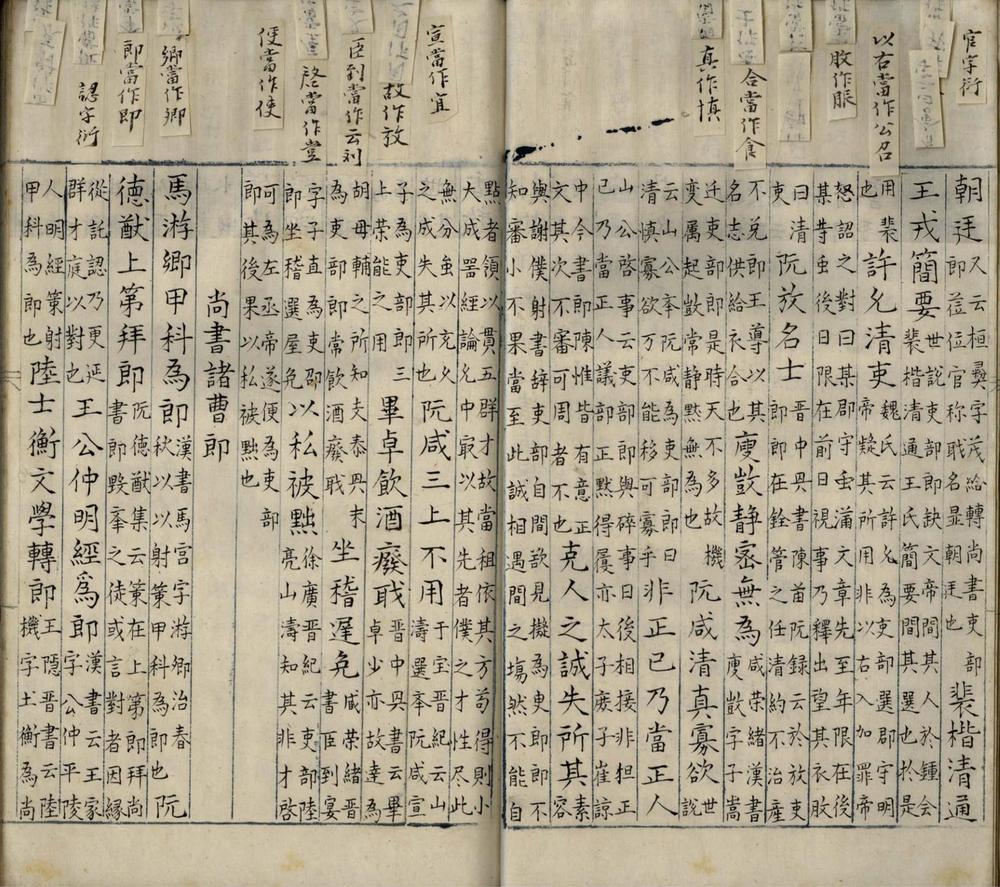 官字衍
以右當作公召
胶作服
合當作食
真作慎
宣當作宜
故作放
臣到當作云刘
啓當作豈
便當作使
卿當作卿
郎當作即
認字衍
朝廷又云桓彞字茂給轉尚書吏部郎莅位官称职名显朝廷也裴楷清通
王戎簡要世説吏部郎缺文帝間其人於鍾会裴楷清通王氏簡要間其選也於是
用裴也許允清吏魏氏云許允為吏部選郡守明帝疑其所用非以右入加罪帝
怒詔之對曰某郡守虫滿文章先至年限在後某守虫後日限在前日視事乃釋出望其衣胶
曰清吏阮放名士晋中興書陳首阮録云於放吏郎郎在銓管之任清約不治産
不兑即王導以其名志供給衣合也庾敳静密無為咸荣緒漢書庾敳字子嵩
迁吏部郎是時天不多故機變属起敳常静黙無為也阮咸清真寡欲世説
云山公举阮咸為吏部郎曰清慎寡欲万不能移可寡乎非正已乃當正人
山公啓事云吏部郎與碎事曰後相接非担正已乃當正人議部正黙得屡亦太子庶子崔諒
中今書郎陳惟皆有意正文其次不審可周者不也克人之誠失所其素容
與謝僕射書辞吏部自間敌見擬為吏郎即不知審小不果當至此誠相遇間之塲然不能自
點者領以貫五群才故當租依其方苟得則小大成噐經論允中㝡以其先者僕之才性尽此
無分虽以充允之成失其所也阮咸三上不用于宝晋紀云山濤選举阮咸宣
子為吏部郎三上荣能之用畢卓飲酒癈职晋中兴書云畢卓少亦故達為
胡毋輔之所知支泰興末為吏部郎常飲酒癈职坐稽遅免咸荣緒晋書臣到宴
字子直為吏部郎坐稽選屋免以私被黜徐廣晋紀云吏部陸亮山濤知其非才啓
可為左丞帝遂便為吏部郎其後果以私被黜也
尚書諸曹郎
馬游卿甲科為郎漢書馬宫字游卿治春秋以射策甲科為郎也阮
德猷上第拜郎阮德猷集云策在上第郎拜尚書郎毀举之徒或言對者因縁
從託認乃更延群才庭以對也王公仲明經爲郎漢書云王家字公仲平陵
人明經策射甲科為郎也陸士衡文學轉郎王隠晋書云陸機字士衡為尚